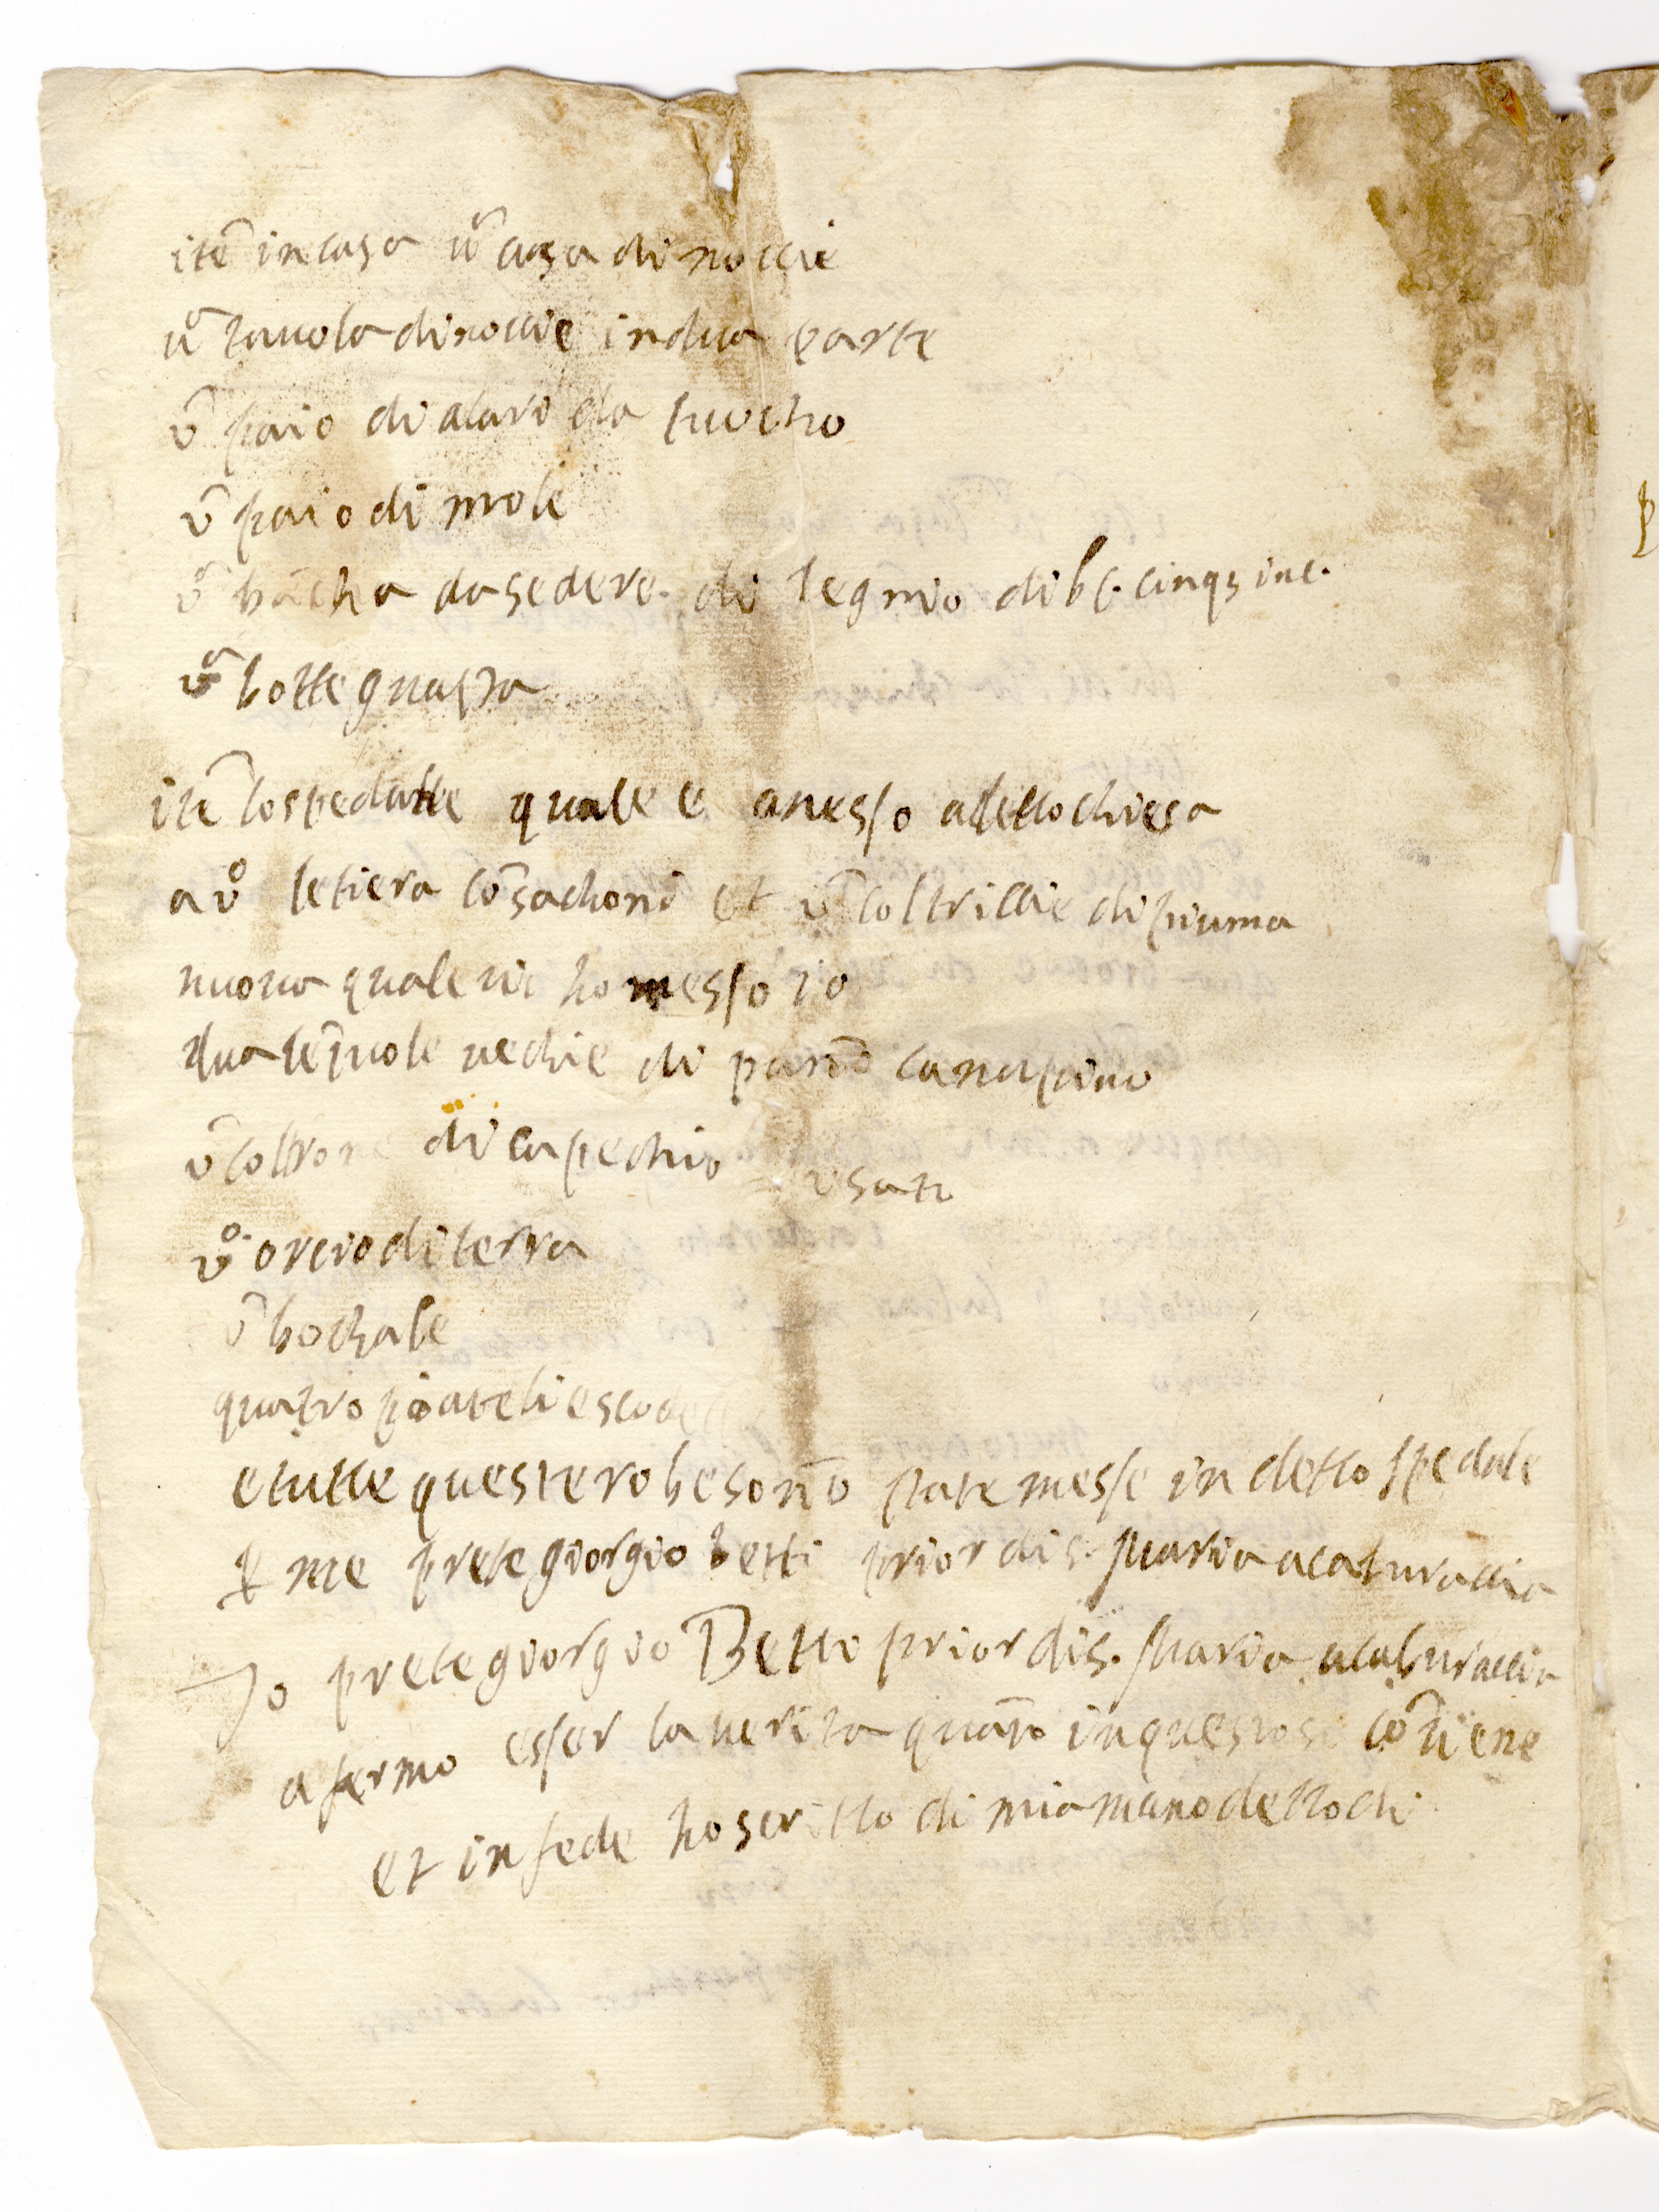 itē in casa ūa casa di noccie
ūa tavola di noccie in dua parte
ū paio di alari da fuocho
ū paio di mole
ūa bācha da sedere. di legnio di br. cinq3 inc.
ūa botte guasta
itē lospedalle quale e anesso a detto chiesa
a uo letiera cō sachoni et ū coltriccie di piuma
nuova quale vi ho messo io
dua lēzuole vechie di panō canapino
ū coltrone di capechio usati
uo orcio di terra
ū bochale
quatro piateli e scodel
e tutte queste robe sonō state messe in detto spedale
ꝑ me prete giorgio betti prior di s. maria a caburaccia
Jo prete giorgio Betti prior di s. maria a caburaccia
afermo esser la verita quāto in questo si cōtiene
et in fede ho scritto di mia mano detto di